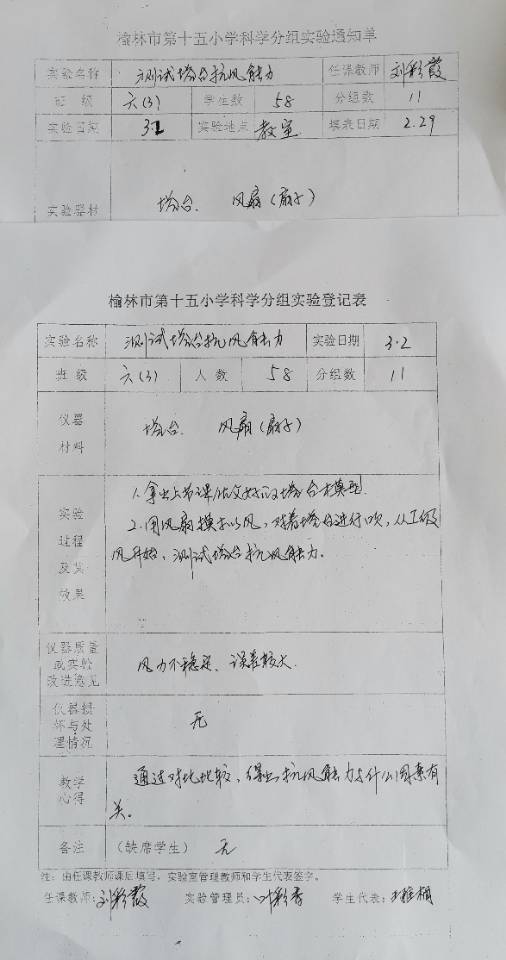 榆林市第十五小学科学分组实验通知单
实验名称 测试塔台抗风能力 任课教师 刘彩霞
班 级 六(3) 学生数 58 分组数 11
实验日期 3.2 实验地点 教室 填表日期 2.29
实验器材 塔台. 风扇(扇子)
榆林市第十五小学科学分组实验登记表
实验名称 测试塔台抗风能力 实验日期 3.2
班 级 六(3) 人 数 58 分组数 11
仪器
材料
塔台. 风扇(扇子)
实验
过程
及其
效果
1.拿出上节课做好的塔台模型.
2.用风扇模拟风,对着塔台进行吹,从1级
风开始,测试塔台抗风能力.
仪器质量
或实验
改进意见
风力不稳定、误差较大.
仪器损
坏与处
理情况
无
教学
心得
通过对比比较,得出抗风能力与什么因素有
关.
备注 (缺席学生) 无
注:由任课教师课后填写,实验室管理教师和学生代表签字。
任课教师:刘彩霞 实验管理员: 学生代表: